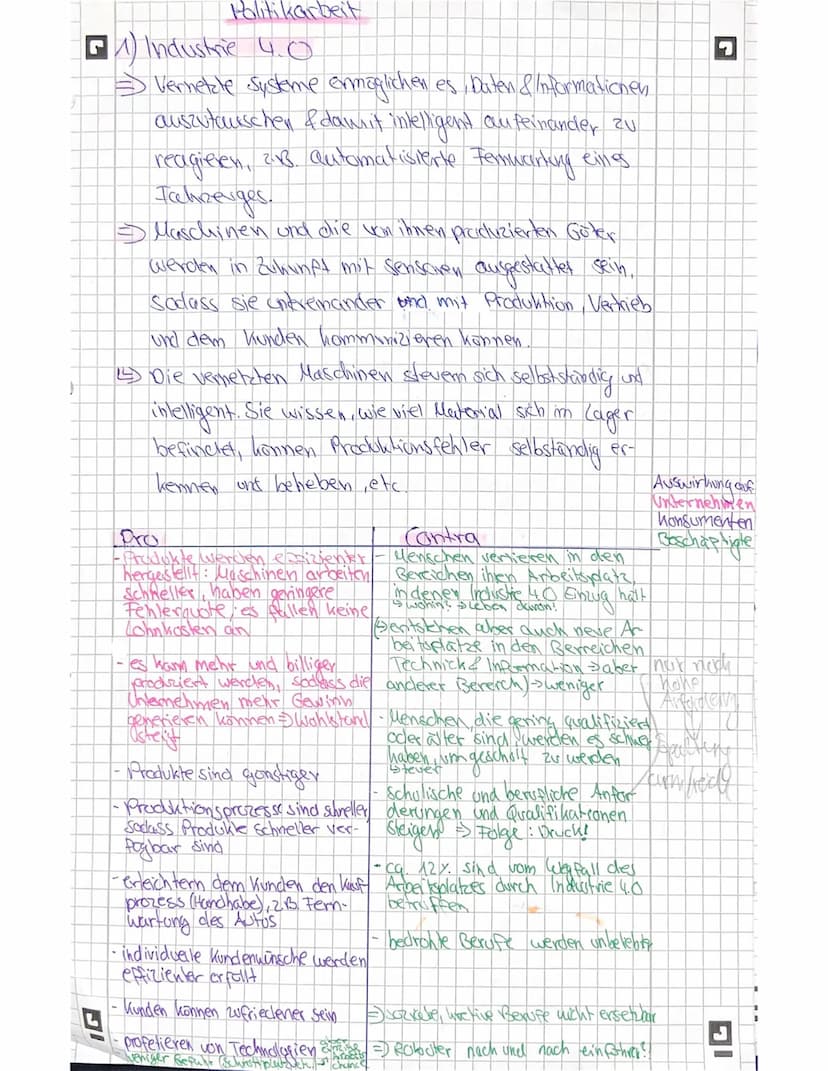 Politikarbeit
1) Industrie 4.0
=> Vernetzte Systeme ermöglichen es, Daten & Informationen
auszutauschen & damit intelligent aufeinander zu
reagieren, z.B. automatisierte Fernwartung eines
Fahrzeuges.
=> Maschinen und die von ihnen produzierten Güter
werden in Zukunft mit Sensoren ausgestattet sein,
sodass sie untereinander und mit Produktion, Vertrieb
und dem Kunden kommunizieren können.
↳ Die vernetzten Maschinen steuern sich selbstständig und
intelligent. Sie wissen, wie viel Material sich im Lager
befindet, können Produktionsfehler selbständig er-
kennen und beheben, etc.
Auswirkung auf:
Unternehmen
Konsumenten
Beschäftigte
Pro
- Produkte werden effizienter
hergestellt: Maschinen arbeiten
schneller, haben geringere
Fehlerquote; es fallen keine
Lohnkosten an
- es kann mehr und billiger
produziert werden, sodass die
Unternehmen mehr Gewinn
generieren können => Wohlstand
steigt
- Produkte sind günstiger
- Produktionsprozesse sind schneller,
sodass Produkte schneller ver-
fügbar sind
- erleichtern dem Kunden den Kauf-
prozess (Handhabe), z.B. Fern-
wartung des Autos
- individuelle Kundenwünsche werden
effizienter erfüllt
- Kunden können zufriedener sein
- profetieren von Technologien
weniger
Contra
- Menschen verlieren in den
Bereichen ihren Arbeitsplatz,
in denen Industrie 4.0 Einzug hält
↳ wohin? => Leben davon?
↳ entstehen aber auch neue Ar-
beitsplätze in den Bereichen
Technick & Information => aber
anderer Bereich) -> weniger
- Menschen, die gering qualifiziert
oder älter sind, werden es schwer
haben, umgeschult zu werden
↳ teuer
- schulische und berufliche Anfor-
derungen und Qualifikationen
steigen => Folge: Druck!
- ca. 12% sind vom Wegfall des
Arbeitsplatzes durch Industrie 4.0
betroffen
- bedrohte Berufe werden unbeliebter
=> soziale, kreative Berufe nicht ersetzbar
=> Roboter nach und nach einführen!
nur noch
hohe
Anfordern
Spaltung
arm/reich